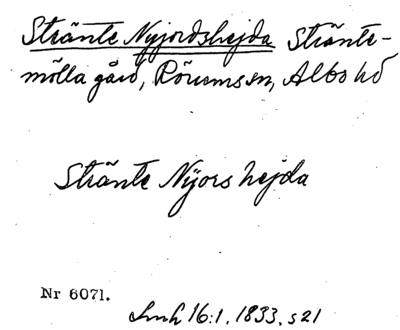 Stränte Nyjordshejda Stränte-
mölla gård, Rörums sn, Albo hd
Stränte Nijors hejda
Nr 6071.
Smh 16:1, 1833, s 21